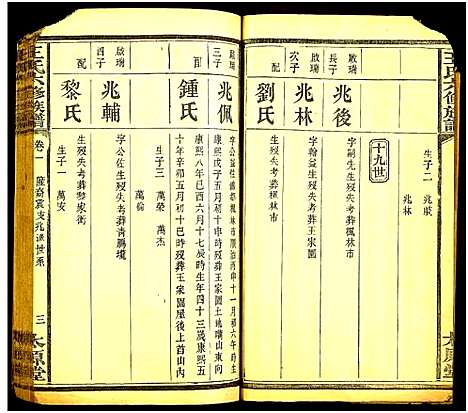 王氏六修族譜
太原堂
生子二
兆成
兆林
十九世
啟瑞長子
兆後
字嗣先生歿失考葬楓林市
啟瑞次子
兆林
字翰益生歿失考葬王家園
配
劉氏
生歿失考葬楓林市
啟瑞三子
兆佩
配
鍾氏
康熙八年己酉六月十七辰時生年四十三歲康熙五
十年辛卯五月初十巳時歿葬王家園屋後上首山內
生子三
萬榮
萬杰
萬倫
啟瑞四子
兆輔
字公佐生歿失考葬青鵬境
配
黎氏
生歿失考葬易家衝
生子一
萬安
王氏六修族譜
卷一
世系
三
太原堂